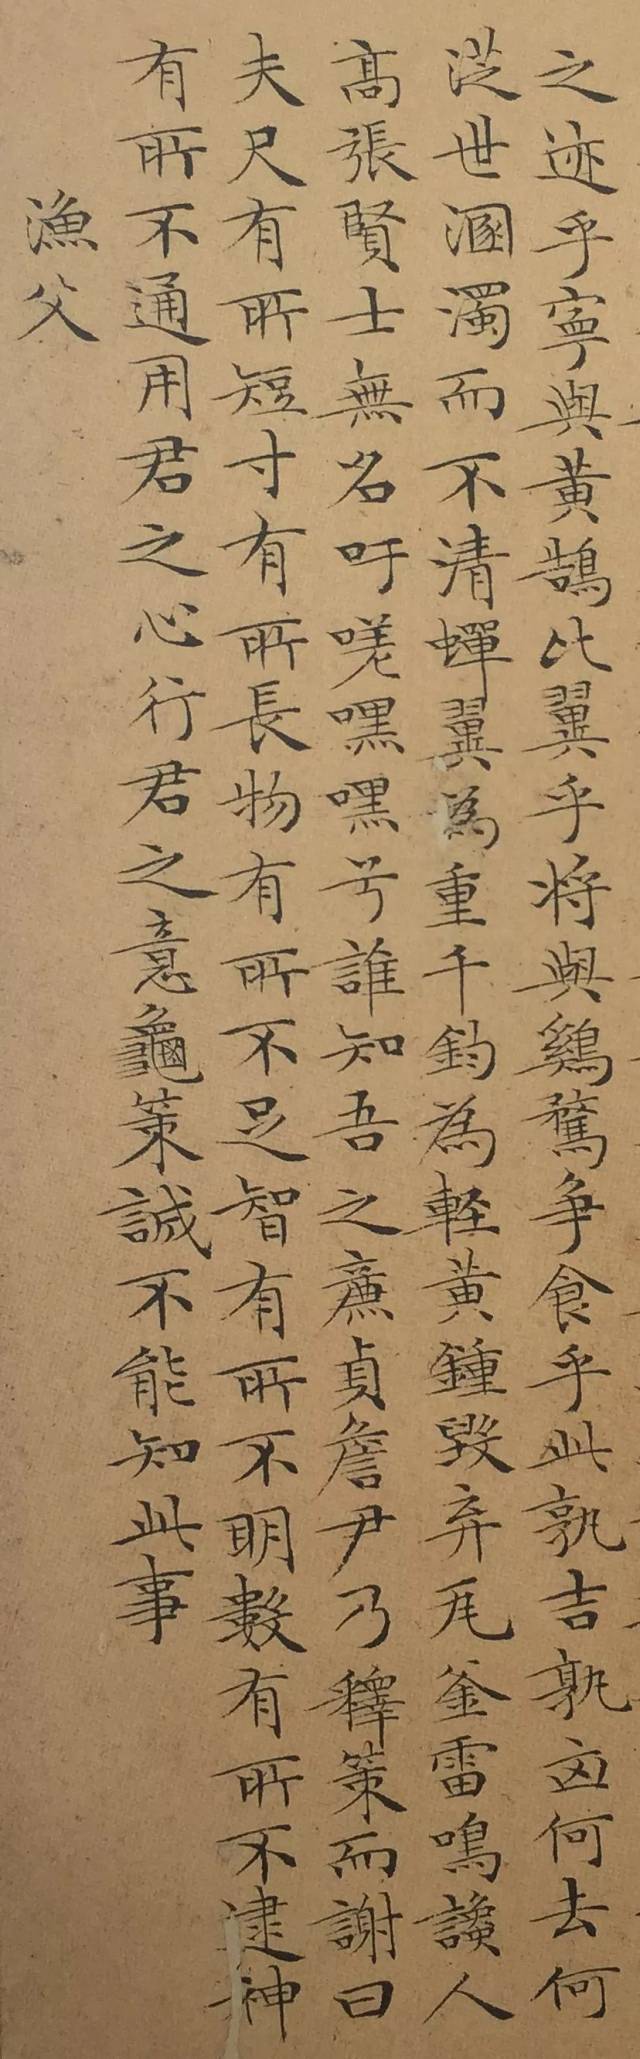 之迹乎寧與黄鵠比翼乎將與鷄鶩争食乎此孰吉孰凶何去何
從世溷濁而不清蟬翼為重千鈞為軽黄鍾毀弃瓦釜雷鳴讒人
髙張賢士無名吁嗟嘿嘿兮誰知吾之廉貞詹尹乃釋策而謝曰
夫尺有所短寸有所長物有所不足智有所不明數有所不逮神
有所不通用君之心行君之意龜策誠不能知此事
漁父